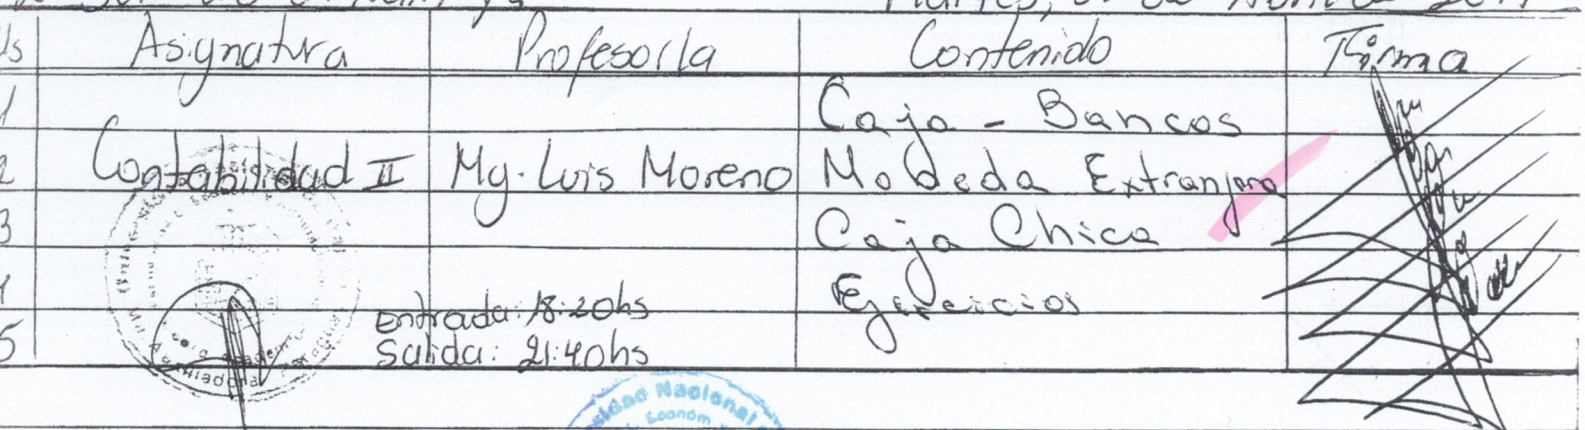 Asignatura Profesor/la Contenido Firma
1 Caja - Bancos
2 Contabilidad II Mg. Luis Moreno Moneda Extranjera
3 Caja Chica
4 Ejercicios
Entrada: 18:20hs
5 Salida: 21:40hs
Nacional
Econom